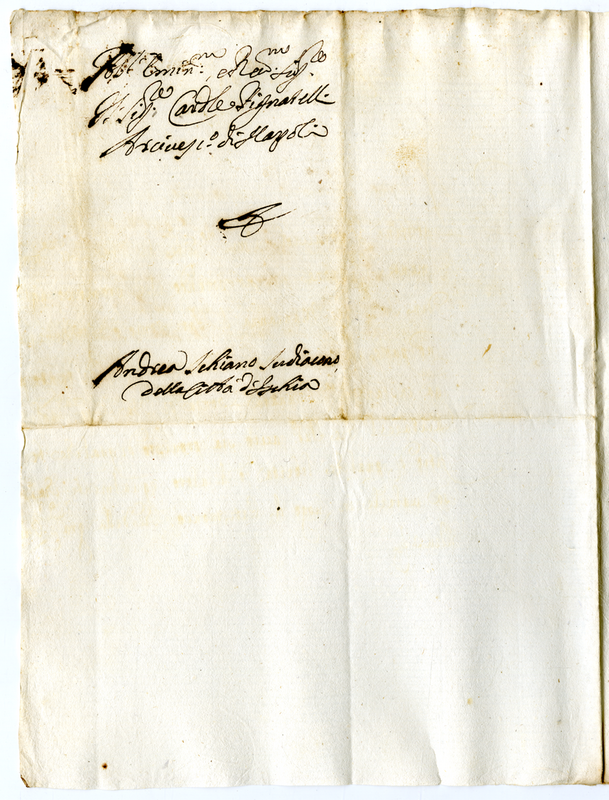 All' Emin.mo e Re.mo Sig.re
Il Sig.re Card.le Pignatelli
Arcivesc.o di Napoli
Andrea Schiano Sudiacono
della Città d'Ischia